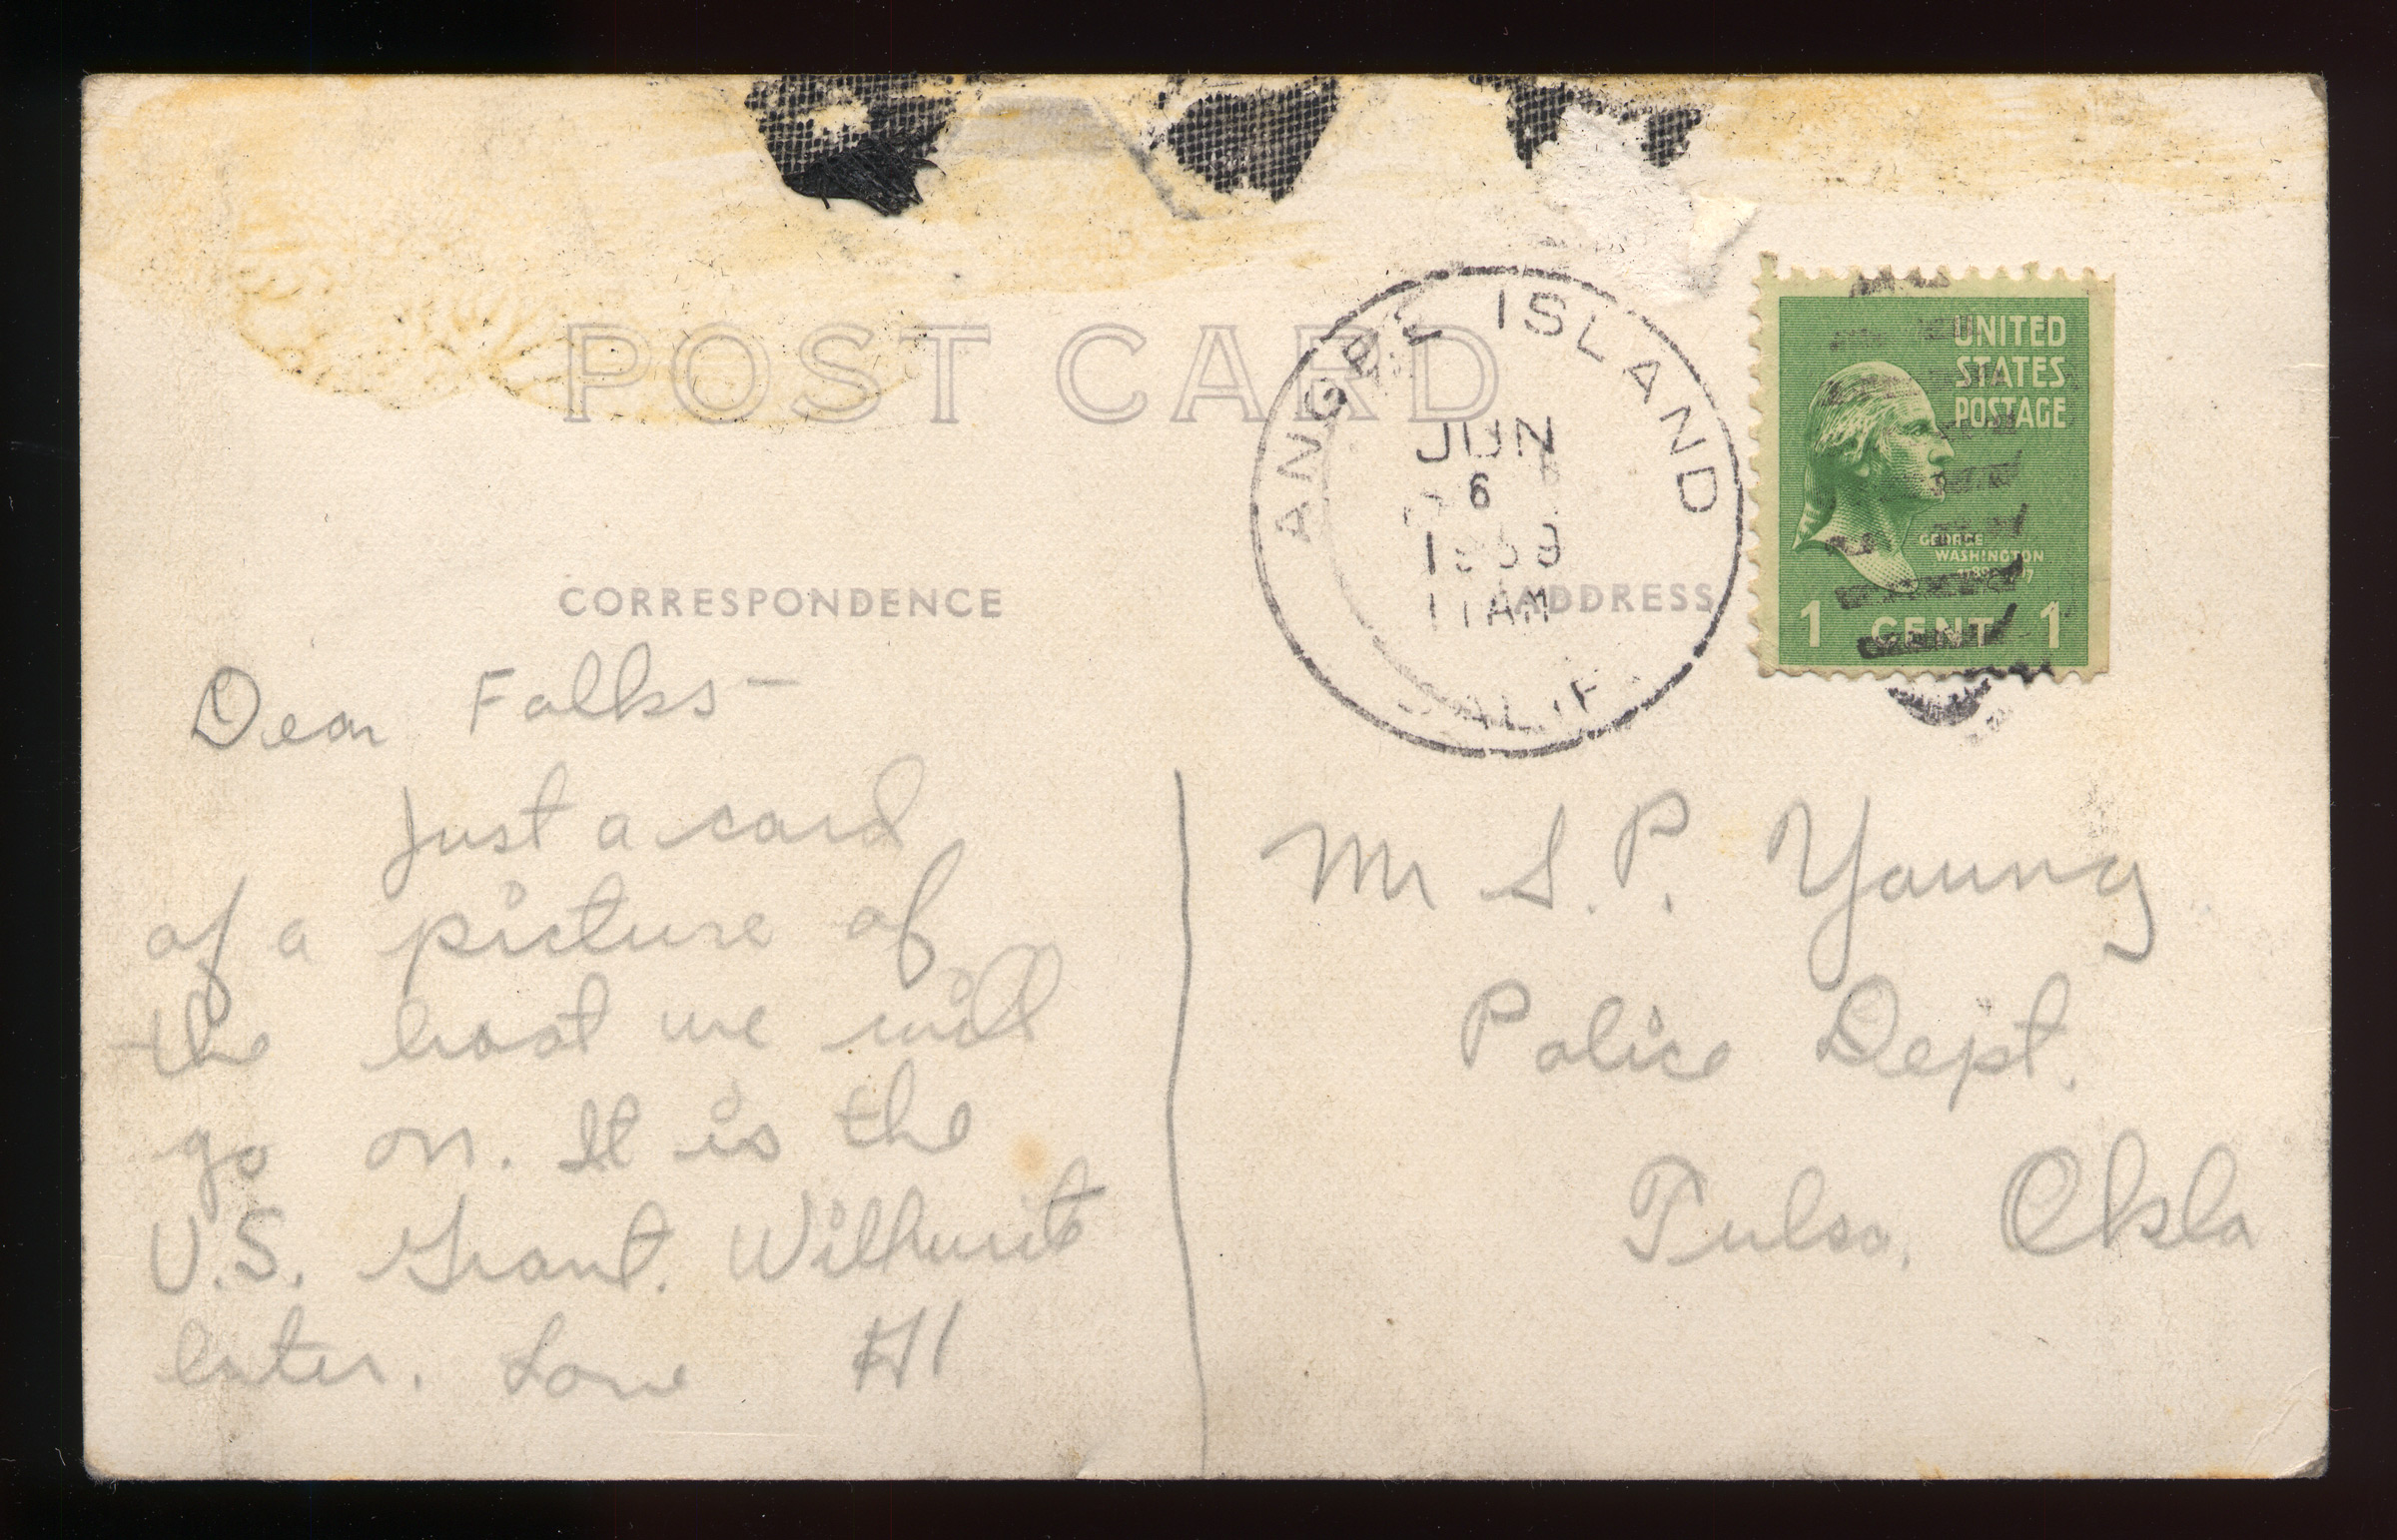 POST CARD
ANGEL ISLAND
JUN
6
11 AM
CALIF.
UNITED
STATES
POSTAGE
GEORGE
WASHINGTON
1 CENT 1
CORRESPONDENCE
ADDRESS
Dear Folks—
Just a card
of a picture of
the boat we will
go on. It is the
U.S. Grant. Will write
later. Love
Mr S. P. Young
Police Dept.
Tulsa, Okla